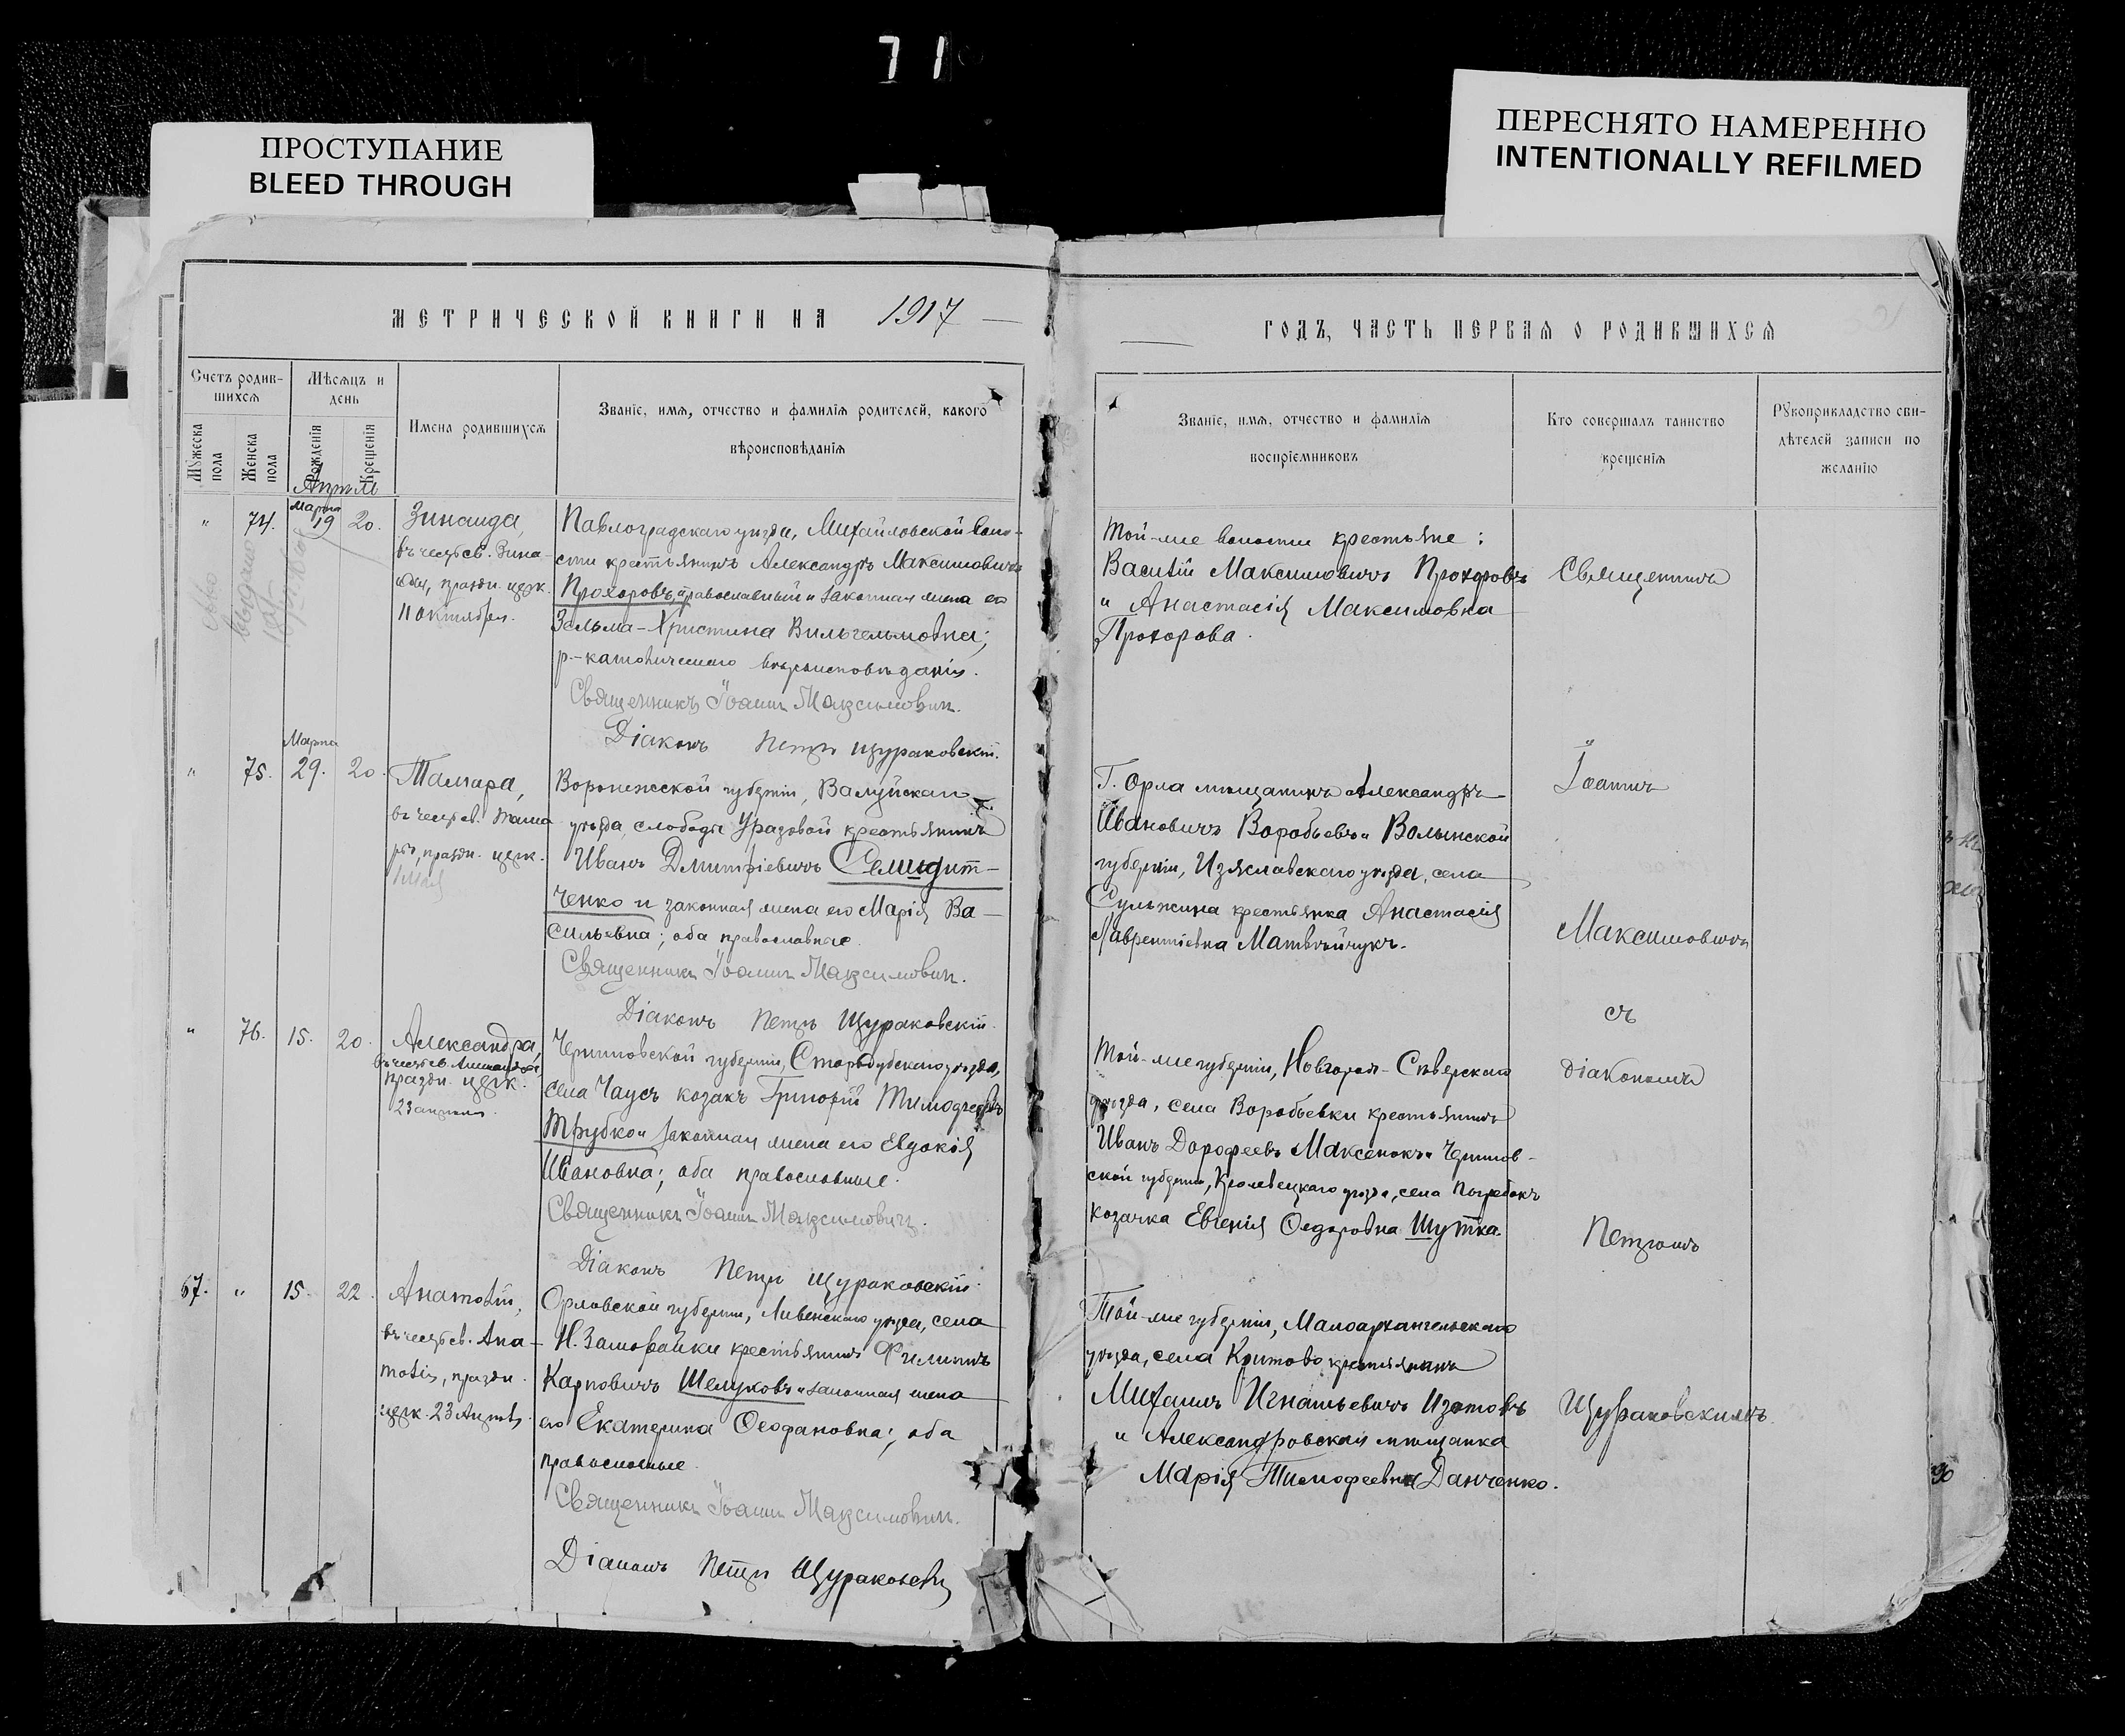 71
ПРОСТУПАНИЕ
BLEED THROUGH
ПЕРЕСНЯТО НАМЕРЕННО
INTENTIONALLY REFILMED
МЕТРИЧЕСКОЙ КНИГИ НА 1917
Счетъ родив-
шихся
Мѣсяцъ и
день
Мужеска
пола
Женска
пола
Рожденія
Крещенія
Имена родившихся
Званіе, имя, отчество и фамилія родителей, какого
вѣроисповѣданія
Апрѣль
" 74. Марта 19 20.
Зинаида,
въ честь св. Зина-
иды, праздн. церк.
11 октября.
Павлоградскаго уѣзда, Михайловской воло-
сти крестьянинъ Александръ Максимовичъ
Прохоровъ, православный и законная жена его
Зельма-Христина Вильгельмовна;
р.-католическаго вѣроисповѣданія.
Священникъ Іоаннъ Максимович.
Діаконъ Петръ Щураковскій.
" 75. Марта 29. 20.
Тамара,
въ честь св. Тама
ры, праздн. церк.
1 Мая
Воронежской губерніи, Валуйскаго
уѣзда, слободы Уразовой крестьянинъ
Иванъ Дмитріевичъ Семидит-
ченко и законная жена его Марія Ва-
сильевна; оба православные.
Священникъ Іоаннъ Максимович.
Діаконъ Петръ Щураковскій.
" 76. 15. 20.
Александра,
въ честь св. Александры
праздн. церк.
23 апреля.
Черниговской губерніи, Стародубскаго уѣзда,
села Чаусъ козакъ Григорій Тимофеевъ
Трубко и законная жена его Евдокія
Ивановна; оба православные.
Священникъ Іоаннъ Максимович.
Діаконъ Петръ Щураковскій.
67. " 15. 22.
Анатолій,
въ честь св. Ана-
толія, праздн.
церк. 23 Апрѣля.
Орловской губерніи, Ливенскаго уѣзда, села
крестьянинъ Филиппъ
Карповичъ Шелуховъ и законная жена
его Екатерина Феофановна; оба
православные.
Священникъ Іоаннъ Максимович.
Діаконъ Петръ Щураковскій
ГОДЪ, ЧАСТЬ ПЕРВАЯ О РОДИВШИХСЯ
Званіе, имя, отчество и фамилія
воспріемниковъ
Кто совершалъ таинство
крещенія
Рукоприкладство сви-
дѣтелей записи по
желанію
Той-же волости крестьяне:
Василій Максимовичъ Прохоровъ
и Анастасія Максимовна
Прохорова.
Г. Орла мѣщанинъ Александръ
Ивановичъ Воробьевъ и Волынской
губерніи, Изяславскаго уѣзда, села
Сульжина крестьянка Анастасія
Лаврентіевна Матвѣйчукъ.
Той-же губерніи, Новгород-Сѣверскаго
уѣзда, села Воробьевки крестьянинъ
Иванъ Дорофеевъ Максенокъ и Чернигов-
ской губерніи, Кролевецкаго уѣзда, села Погребокъ
козачка Евгенія Федоровна Шутка.
Той-же губерніи, Малоархангельскаго
уѣзда, села крестьянинъ
Михаилъ Игнатьевичъ Изотовъ
и Александровская мѣщанка
Марія Тимофеевна Данченко.
Священникъ
Іоаннъ
Максимовичъ
съ
діакономъ
Петромъ
Щураковскимъ.